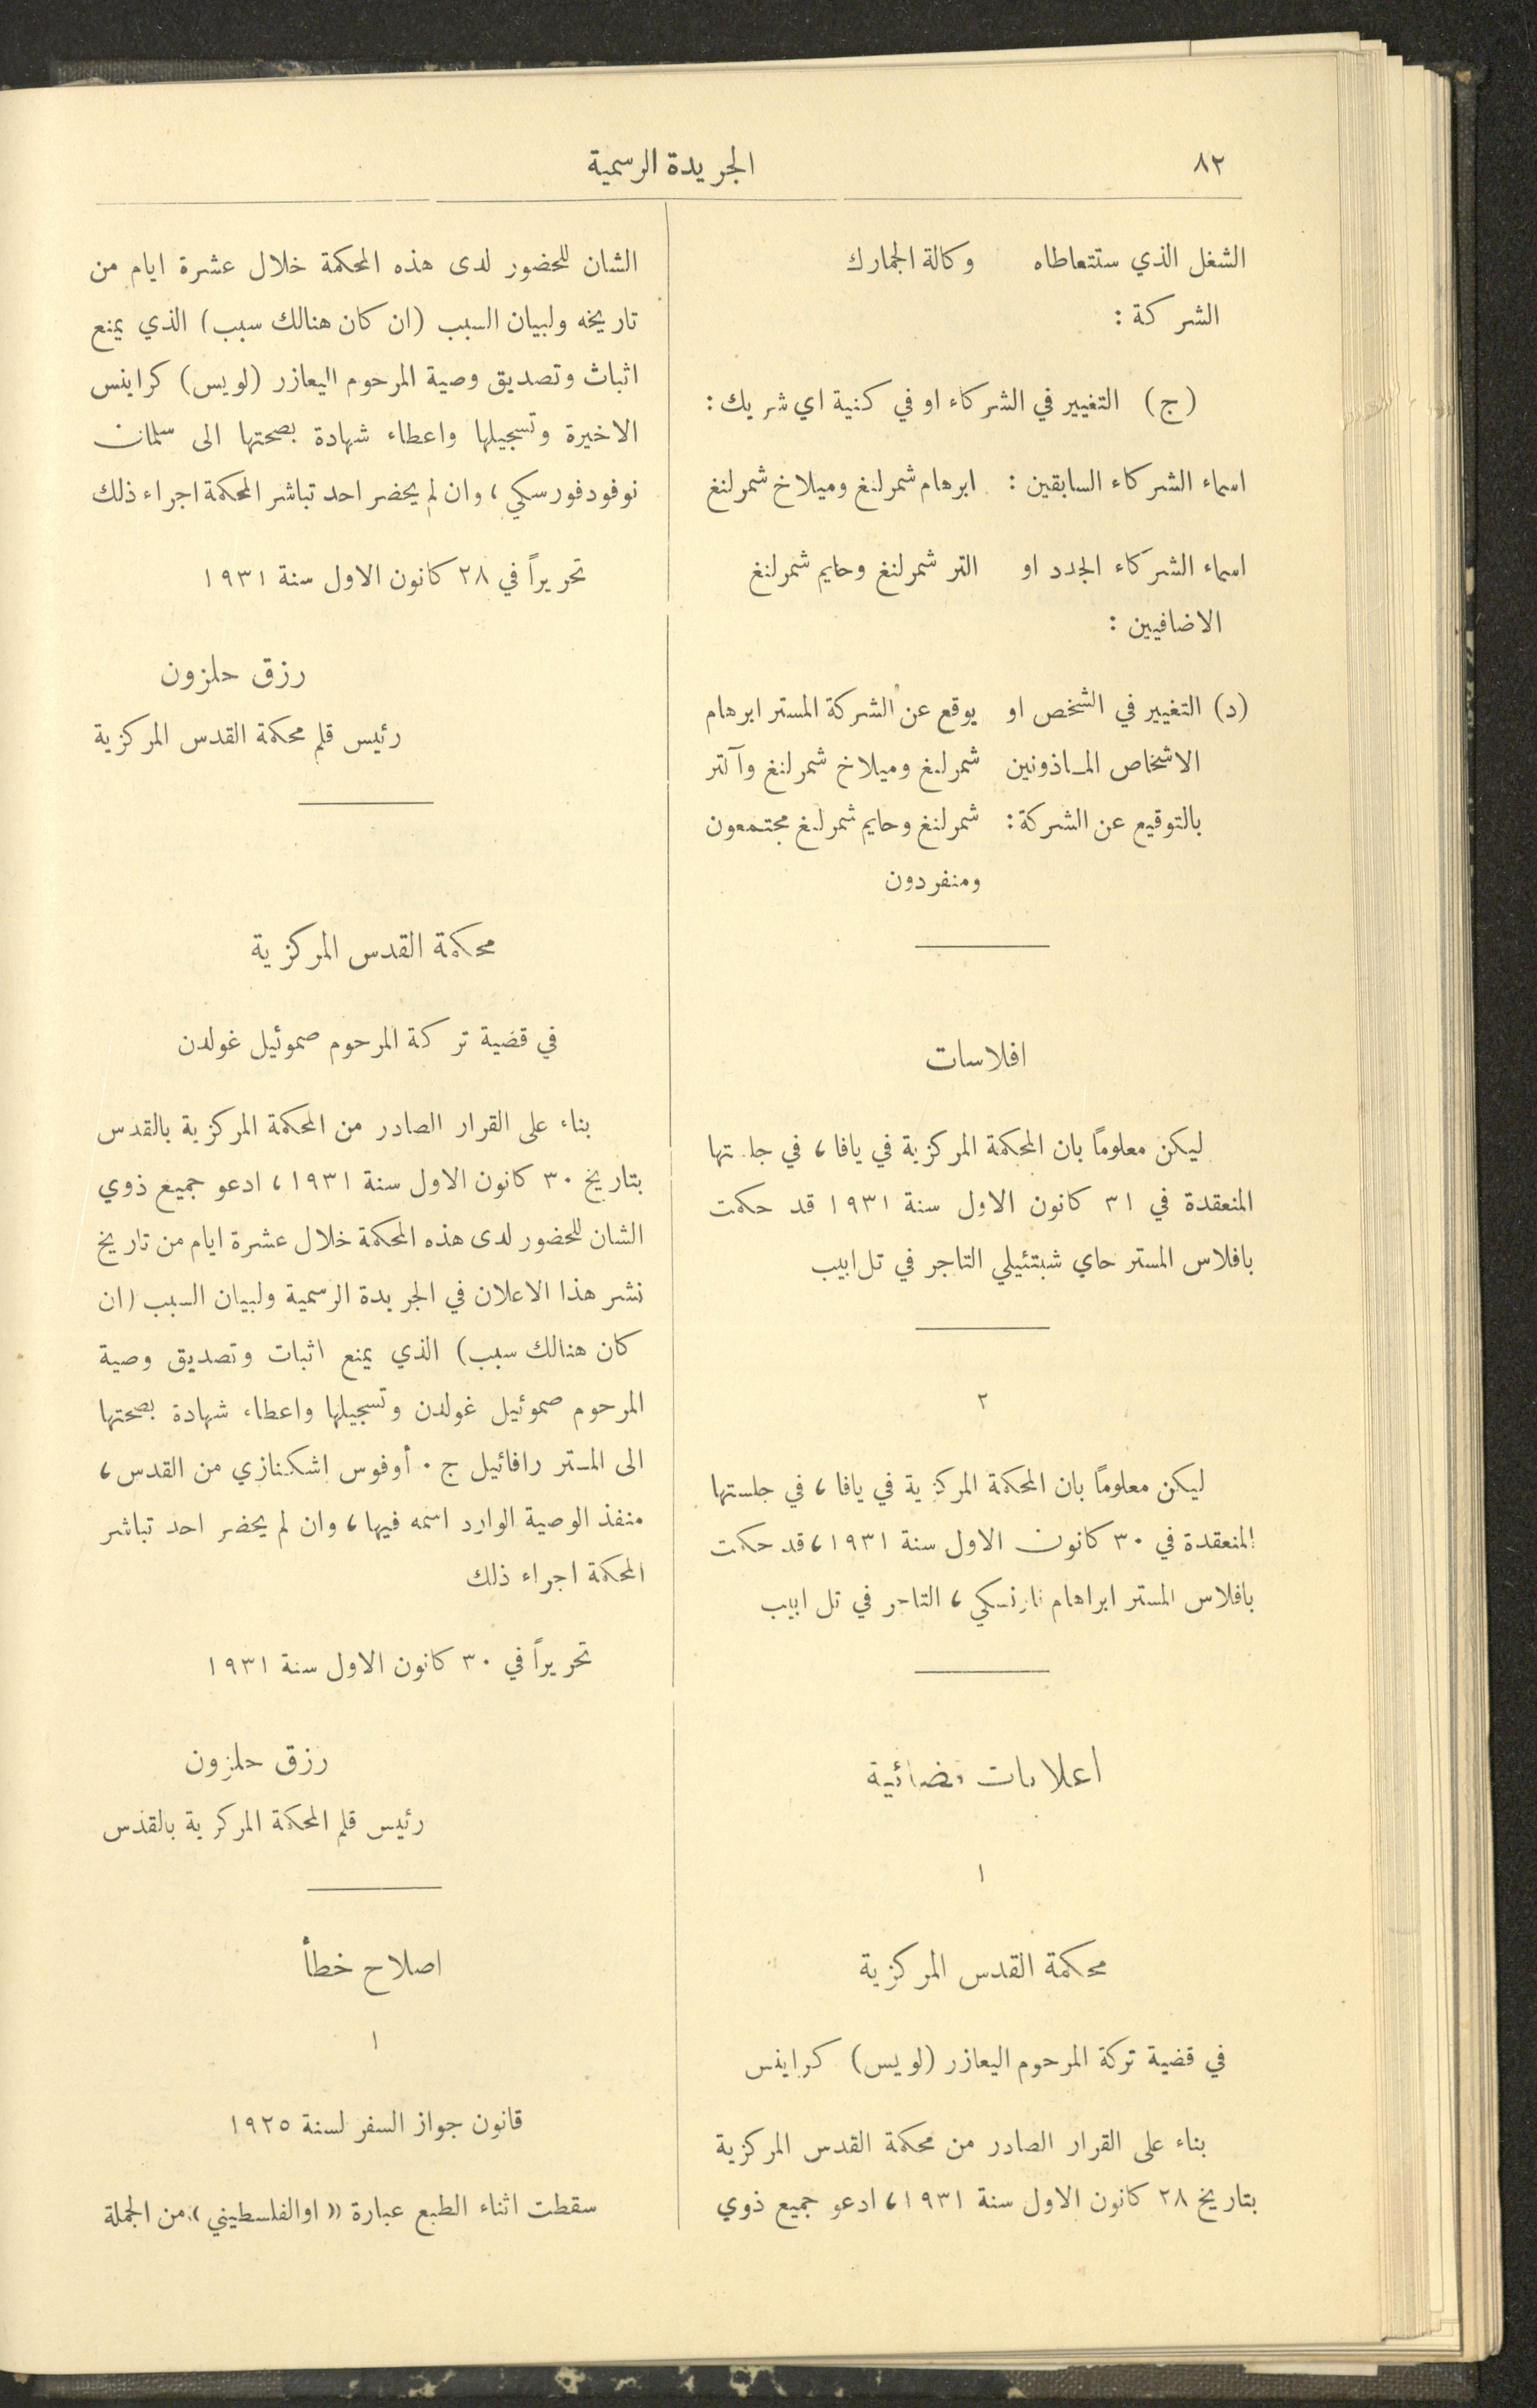 ٨٢
الجريدة الرسمية
الشغل الذي ستتعاطاه وكالة الجمارك
الشركة :
(ج) التغيير في الشركاء او في كنية اي شريك :
اسماء الشركاء السابقين : ابرهام شمرلنغ وميلاخ شمرلنغ
اسماء الشركاء الجدد او التر شمرلنغ وحايم شمرلنغ
الاضافيين :
(د) التغيير في الشخص او يوقع عن الشركة المستر ابرهام
الاشخاص المـاذونين شمرلنغ وميلاخ شمرلنغ وآلتر
بالتوقيع عن الشركة : شمرلنغ وحايم شمرلنغ مجتمعون
ومنفردون
افلاسات
ليكن معلوماً بان المحكمة المركزية في يافا ، في جلستها
المنعقدة في ٣١ كانون الاول سنة ١٩٣١ قد حكمت
بافلاس المستر حاي شبتئيلي التاجر في تل ابيب
٢
ليكن معلوماً بان المحكمة المركزية في يافا ، في جلستها
المنعقدة في ٣٠ كانون الاول سنة ١٩٣١ ، قد حكمت
بافلاس المستر ابراهام ، التاجر في تل ابيب
اعلانات قضائية
١
محكمة القدس المركزية
في قضية تركة المرحوم اليعازر (لويس) كراينس
بناء على القرار الصادر من محكمة القدس المركزية
بتاريخ ٢٨ كانون الاول سنة ١٩٣١ ، ادعو جميع ذوي
الشان للحضور لدى هذه المحكمة خلال عشرة ايام من
تاريخه ولبيان السبب (ان كان هنالك سبب) الذي يمنع
اثبات وتصديق وصية المرحوم اليعازر (لويس) كراينس
الاخيرة وتسجيلها واعطاء شهادة بصحتها الى سلمان
نوفودفورسكي ، وان لم يحضر احد تباشر المحكمة اجراء ذلك
تحريراً في ٢٨ كانون الاول سنة ١٩٣١
رزق حلزون
رئيس قلم محكمة القدس المركزية
محكمة القدس المركزية
في قضية تركة المرحوم صموئيل غولدن
بناء على القرار الصادر من المحكمة المركزية بالقدس
بتاريخ ٣٠ كانون الاول سنة ١٩٣١ ، ادعو جميع ذوي
الشان للحضور لدى هذه المحكمة خلال عشرة ايام من تاريخ
نشر هذا الاعلان في الجريدة الرسمية ولبيان السبب (ان
كان هنالك سبب) الذي يمنع اثبات وتصديق وصية
المرحوم صموئيل غولدن وتسجيلها واعطاء شهادة بصحتها
الى المستر رافائيل ج . أوفوس اشكنازي من القدس ،
منفذ الوصية الوارد اسمه فيها ، وان لم يحضر احد تباشر
المحكمة اجراء ذلك
تحريراً في ٣٠ كانون الاول سنة ١٩٣١
رزق حلزون
رئيس قلم المحكمة المركزية بالقدس
اصلاح خطأ
١
قانون جواز السفر لسنة ١٩٢٥
سقطت اثناء الطبع عبارة « اوالفلسطيني » من الجملة